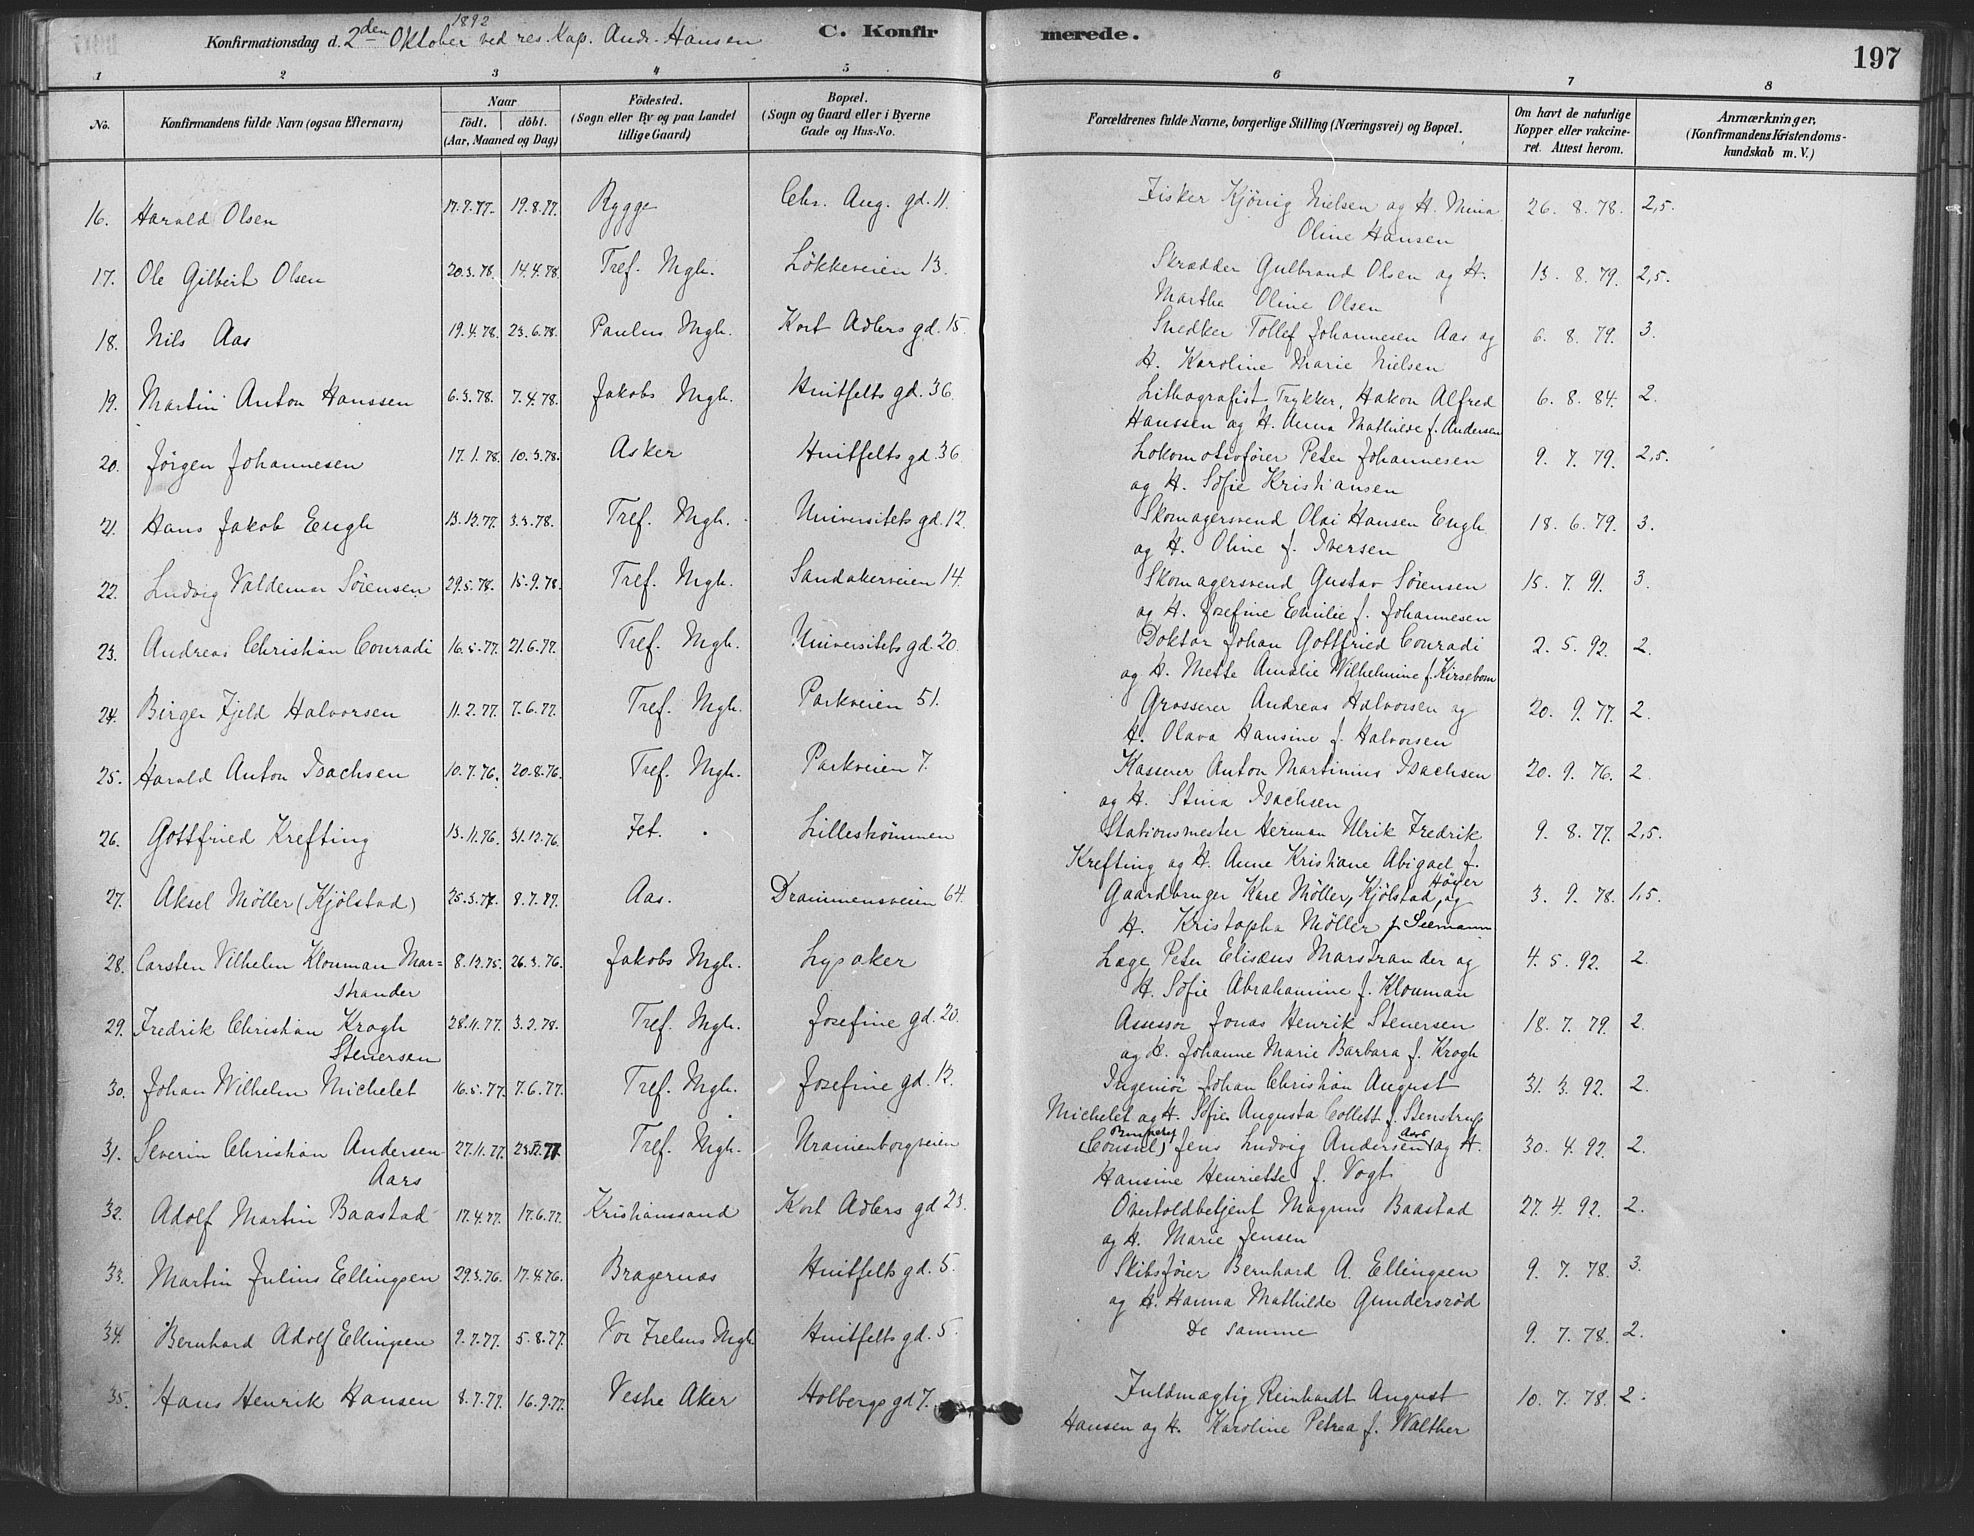 Konfirmationsdag d. 2den Oktober 1892 ved res. Kap. Andr. Hansen C. Konfirmerede. 197
1 2 3 4 5 6 7 8
No. Konfirmandens fulde Navn (ogsaa Efternavn) Naar födt. döbt. (Aar, Maaned og Dag) Födested. (Sogn eller By og paa Landet tillige Gaard) Bopæl. (Sogn og Gaard eller i Byerne Gade og Hus-No. Forældrenes fulde Navne, borgerlige Stilling (Næringsvei) og Bopæl. Om havt de naturlige Kopper eller vakcineret. Attest herom. Anmærkninger, (Konfirmandens Kristendomskundskab m. V.)
16. Harald Olsen 17.7.77. 19.8.77. Rygge Chr. Aug. gd. 11. Fisker Kjönig Nielsen og H. Mina 26. 8. 78. 2,5.
Oline Hansen
17. Ole Gilbert Olsen 20.3.78. 14.4.78. Tref. Mgh. Lökkeveien 13. Skrædder Gulbrand Olsen og H. 13. 8. 79. 2,5.
Marthe Oline Olsen
18. Nils Aas 19.4.78. 23.6.78. Paulus Mgh. Kort Adlers gd. 15. Snedker Tollef Johannesen Aas og 6. 8. 79. 3.
H. Karoline Marie Nielsen
19. Martin Anton Hanssen 6.3.78. 7.4.78. Jakobs Mgh. Huitfelts gd. 36. Lithografist Trykker, Hakon Alfred 6. 8. 84. 2.
Hanssen og H. Anna Mathilde f. Andersen
20. Jörgen Johannesen 17.1.78. 10.3.78. Asker Huitfelts gd. 36. Lokomotivförer Peter Johannesen 9. 7. 79. 2,5.
og H. Sofie Kristiansen
21. Hans Jakob Engh 13.12.77. 3.3.78. Tref. Mgh. Universitets gd. 12. Skomagersvend Olai Hansen Engh 18. 6. 79. 3.
og H. Oline f. Iversen
22. Ludvig Valdemar Sörensen 29.5.78. 15.9.78. Tref. Mgh. Sandakerveien 14. Skomagersvend Gustav Sörensen 15. 7. 91. 3.
og H. Josefine Emilie f. Johannesen
23. Andreas Christian Conradi 16.5.77. 21.6.77. Tref. Mgh. Universitets gd. 20. Doktor Johan Gottfried Conradi 2. 5. 92. 2.
og H. Mette Amalie Wilhelmine f. Kirsebom
24. Birger Fjeld Halvorsen 11.2.77. 7.6.77. Tref. Mgh. Parkveien 51. Grosserer Andreas Halvorsen og 20. 9. 77. 2.
H. Olava Hansine f. Halvorsen
25. Harald Anton Isachsen 10.7.76. 20.8.76. Tref. Mgh. Parkveien 7. Kasserer Anton Martinius Isachsen 20. 9. 76. 2.
og H. Stina Isachsen
26. Gottfried Krefting 13.11.76. 31.12.76. Fet. Lilleströmmen Stationsmester Herman Ulrik Fredrik 9. 8. 77. 2,5.
Krefting og H. Anne Kristiane Abigael f. Höyer
27. Aksel Möller (Kjölstad) 25.3.77. 8.7.77. Aas. Drammensveien 64. Gaardbruger Karl Möller, Kjölstad, og 3. 9. 78. 1,5.
H. Kristopha Möller f. Seemann
28. Carsten Vilhelm Klouman Mar= 8.12.75. 26.3.76. Jakobs Mgh. Lysaker Læge Peter Elisæus Marstrander og 4. 5. 92. 2.
strander H. Sofie Abrahamine f. Klouman
29. Fredrik Christian Krogh 28.11.77. 3.2.78. Tref. Mgh. Josefine gd. 20. Assessor Jonas Henrik Stenersen 18. 7. 79. 2.
Stenersen og H. Johanne Marie Barbara f. Krogh
30. Johan Wilhelm Michelet 16.5.77. 7.6.77. Tref. Mgh. Josefine gd. 12. Ingeniör Johan Christian August 31. 3. 92. 2.
Michelet og H. Sofie Augusta Collett f. Stenstrup
31. Severin Christian Andersen 27.11.77. Tref. Mgh. Uranienborgveien (Consul) Jens Ludvig Andersen Aars og H. 30. 4. 92. 2.
Aars Hansine Henriette f. Vogt
32. Adolf Martin Baastad 17.4.77. 17.6.77. Kristianssand Kort Adlers gd 23. Overtoldbetjent Magnus Baastad 27. 4. 92. 2.
og H. Marie Jensen
33. Martin Julius Ellingsen 29.3.76. 17.4.76. Bragernæs Huitfelts gd. 5. Skibsförer Bernhard A. Ellingsen 9. 7. 78. 3.
og H. Hanna Mathilde Gundersröd
34. Bernhard Adolf Ellingsen 9.7.77. 5.8.77. Vor Frelsers Mgh Huitfelts gd. 5. De samme 9. 7. 78. 2.
35. Hans Henrik Hansen 8.7.77. 16.9.77. Vestre Aker Holbergs gd 7. Fuldmægtig Reinhardt August 10. 7. 78. 2.
Hansen og H. Karoline Petrea f. Walther